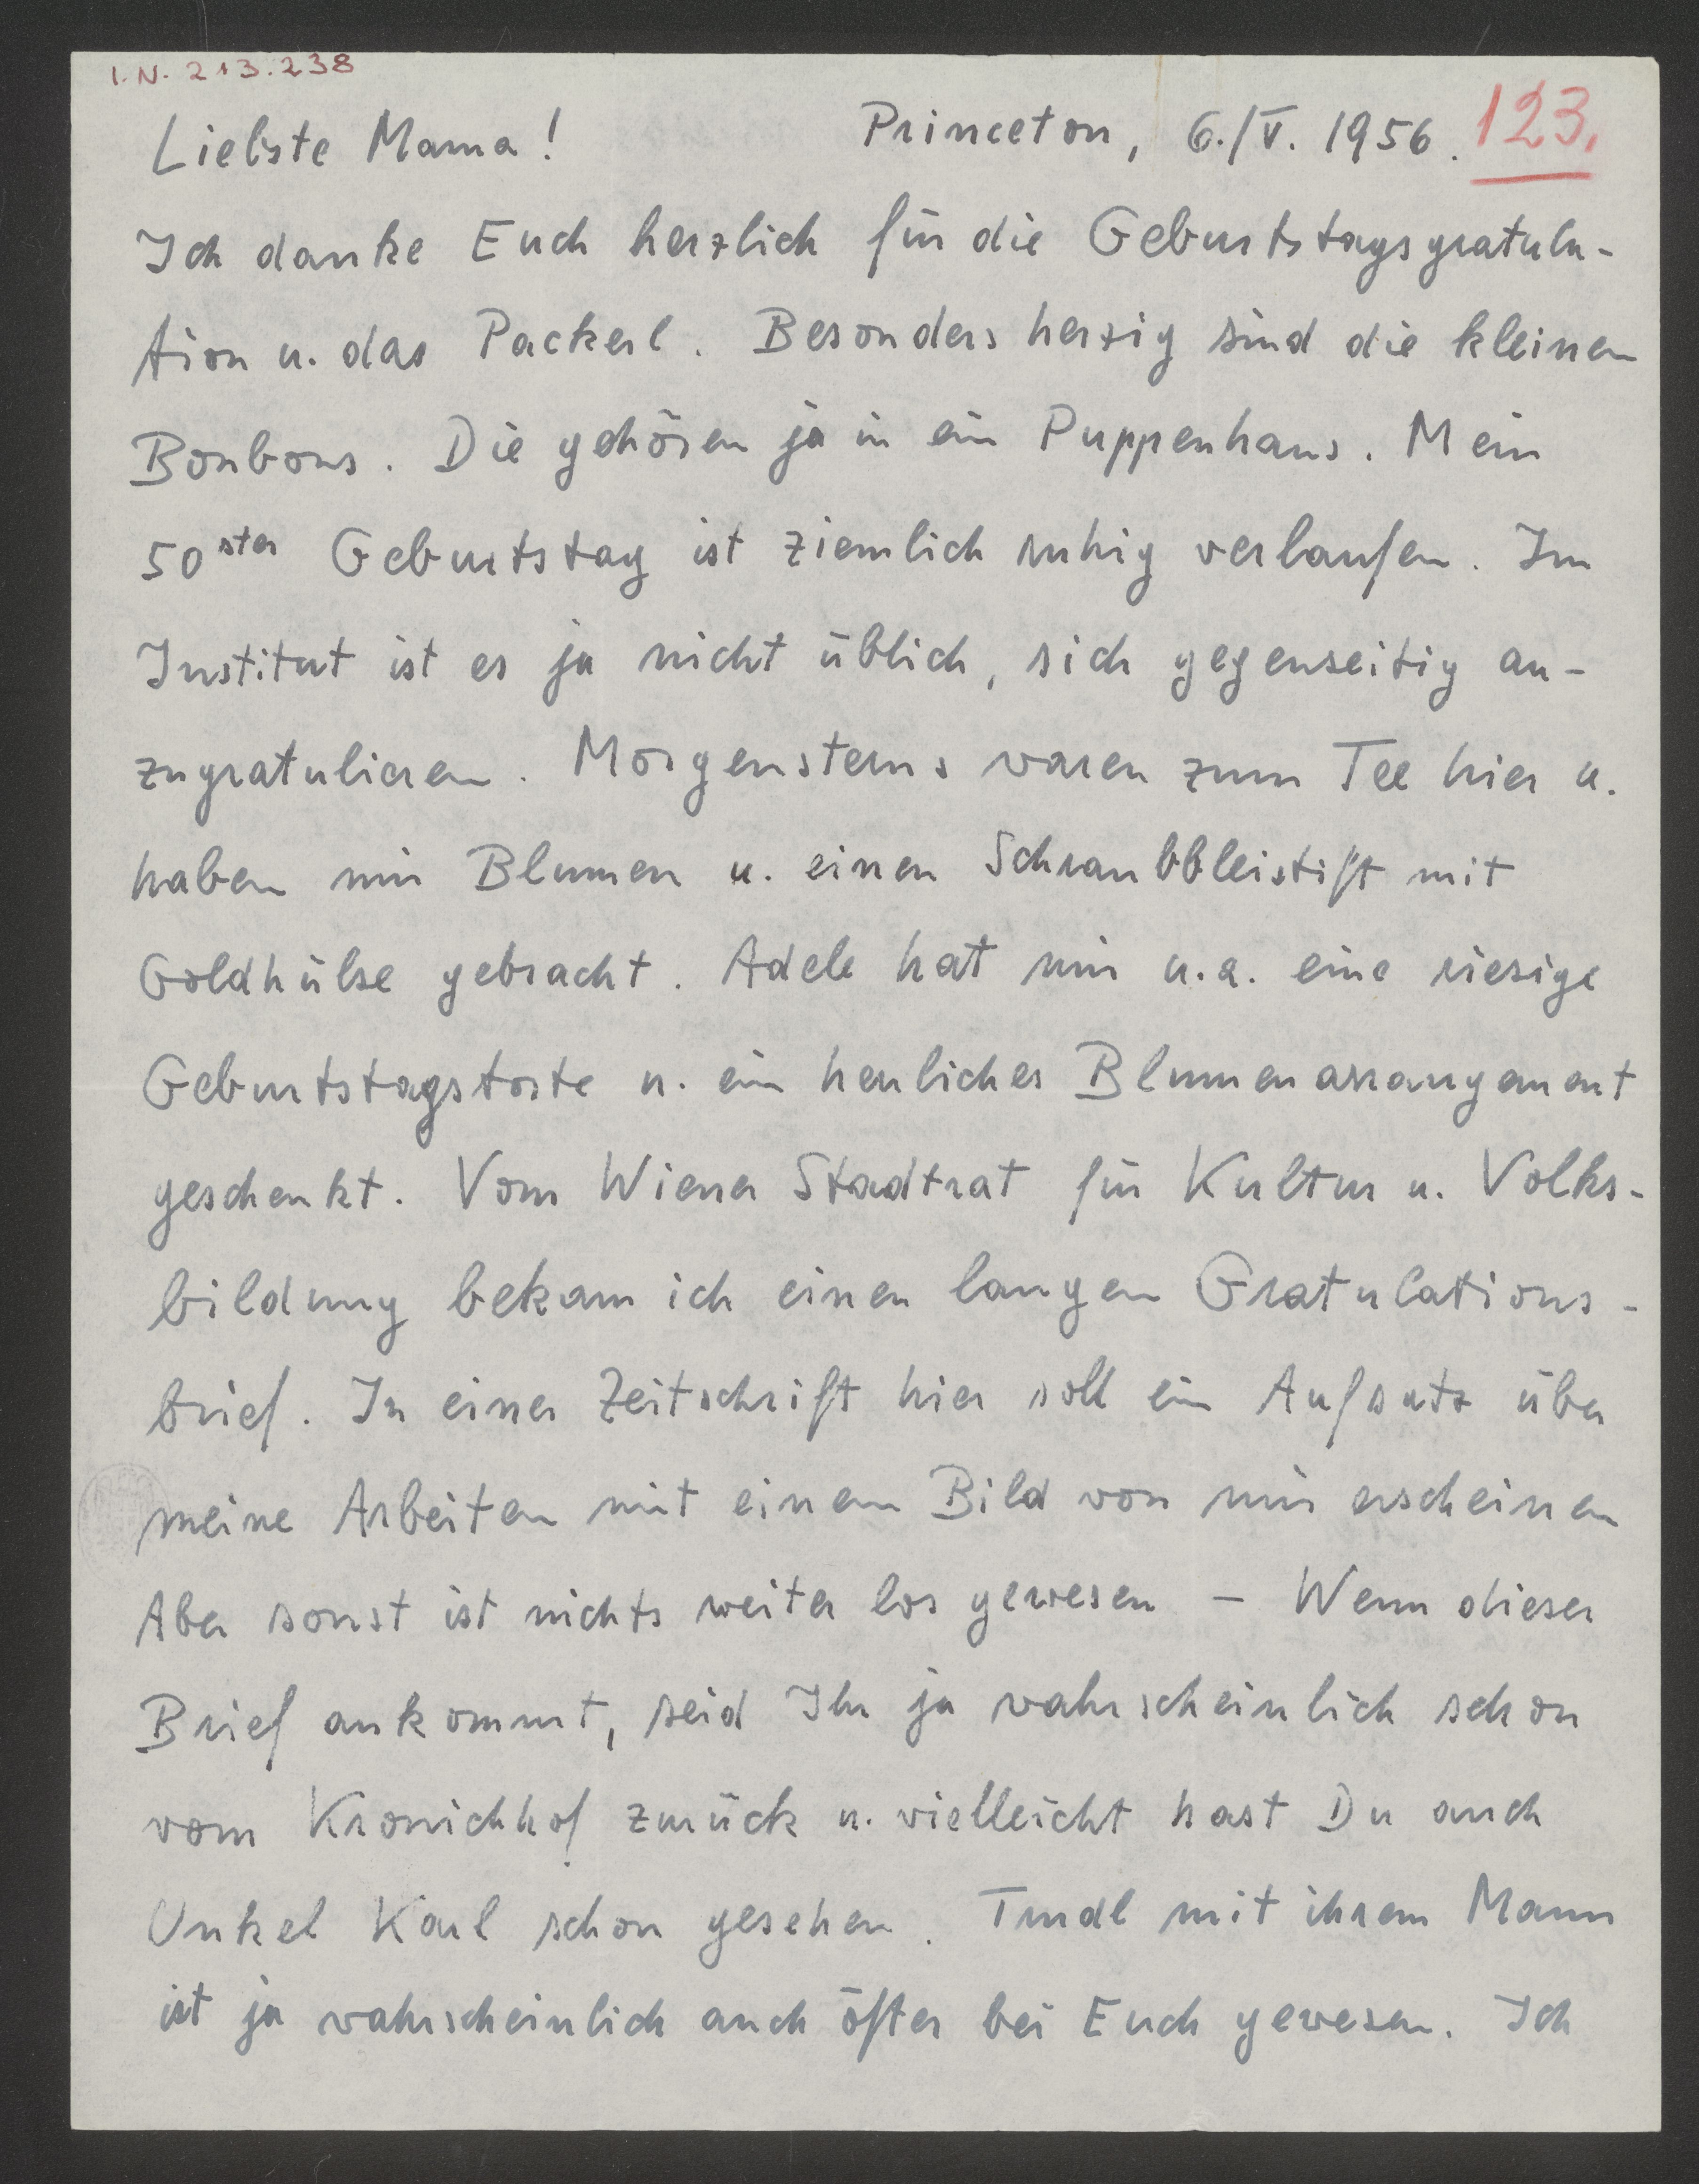 I.N. 213.238
Liebste Mama! Princeton, 6./V. 1956. 123.
Ich danke Euch herzlich für die Geburtstagsgratula-
tion u. das Packerl. Besonders herzig sind die kleinen
Bonbons. Die gehören ja in ein Puppenhaus. Mein
50ster Geburtstag ist ziemlich ruhig verlaufen. Im
Institut ist es ja nicht üblich, sich gegenseitig an-
zugratulieren. Morgensterns waren zum Tee hier u.
haben mir Blumen u. einen Schraubbleistift mit
Goldhülse gebracht. Adele hat mir u.a. eine riesige
Geburtstagstorte u. ein herrliches Blumenarrangement
geschenkt. Vom Wiener Stadtrat für Kultur u. Volks-
bildung bekam ich einen langen Gratulations-
brief. In einer Zeitschrift hier soll ein Aufsatz über
meine Arbeiten mit einem Bild von mir erscheinen
Aber sonst ist nichts weiter los gewesen – Wenn dieser
Brief ankommt, seid Ihr ja wahrscheinlich schon
vom Kronichhof zurück u. vielleicht hast Du auch
Onkel Karl schon gesehen. Trudl mit ihrem Mann
ist ja wahrscheinlich auch öfter bei Euch gewesen. Ich